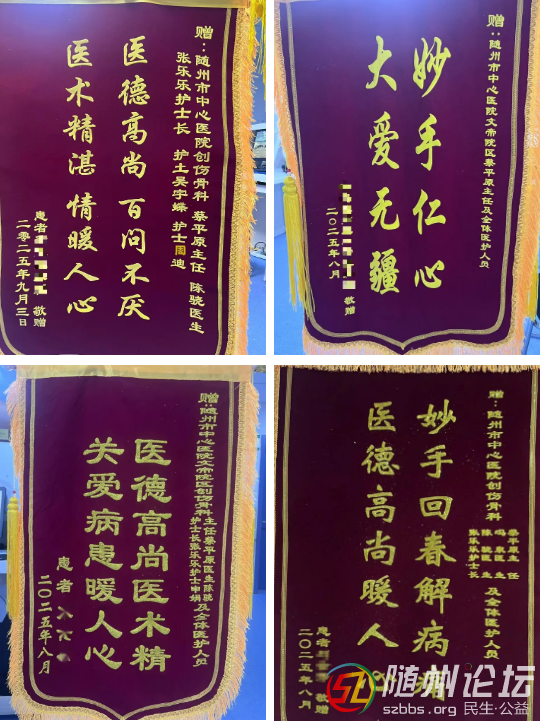 赠：随州市中心医院创伤骨科 蔡平原主任 陈骁医生
张乐乐护士长 护士吴宇嫘 护士周迪
医德高尚 百问不厌
医术精湛 情暖人心
患者
敬赠
二零二五年九月三日
赠：随州市中心医院文帝院区蔡平原主任及全体医护人员
妙手仁心
大爱无疆
敬赠
二〇二五年八月
赠：随州市中心医院文帝院区创伤骨科主任蔡平原医生陈骁
护士长张乐乐护士申娟
及全体医护人员
医德高尚医术精
关爱病患暖人心
患者
二〇二五年八月
赠：随州市中心医院创伤骨科
蔡平原主任
冯泉医生
陈骁医生
张乐乐护士长
及全体医护人员
妙手回春解病
医德高尚暖人
患者
敬赠
二〇二五年八月
随州论坛
szbbs.org 民生·公益